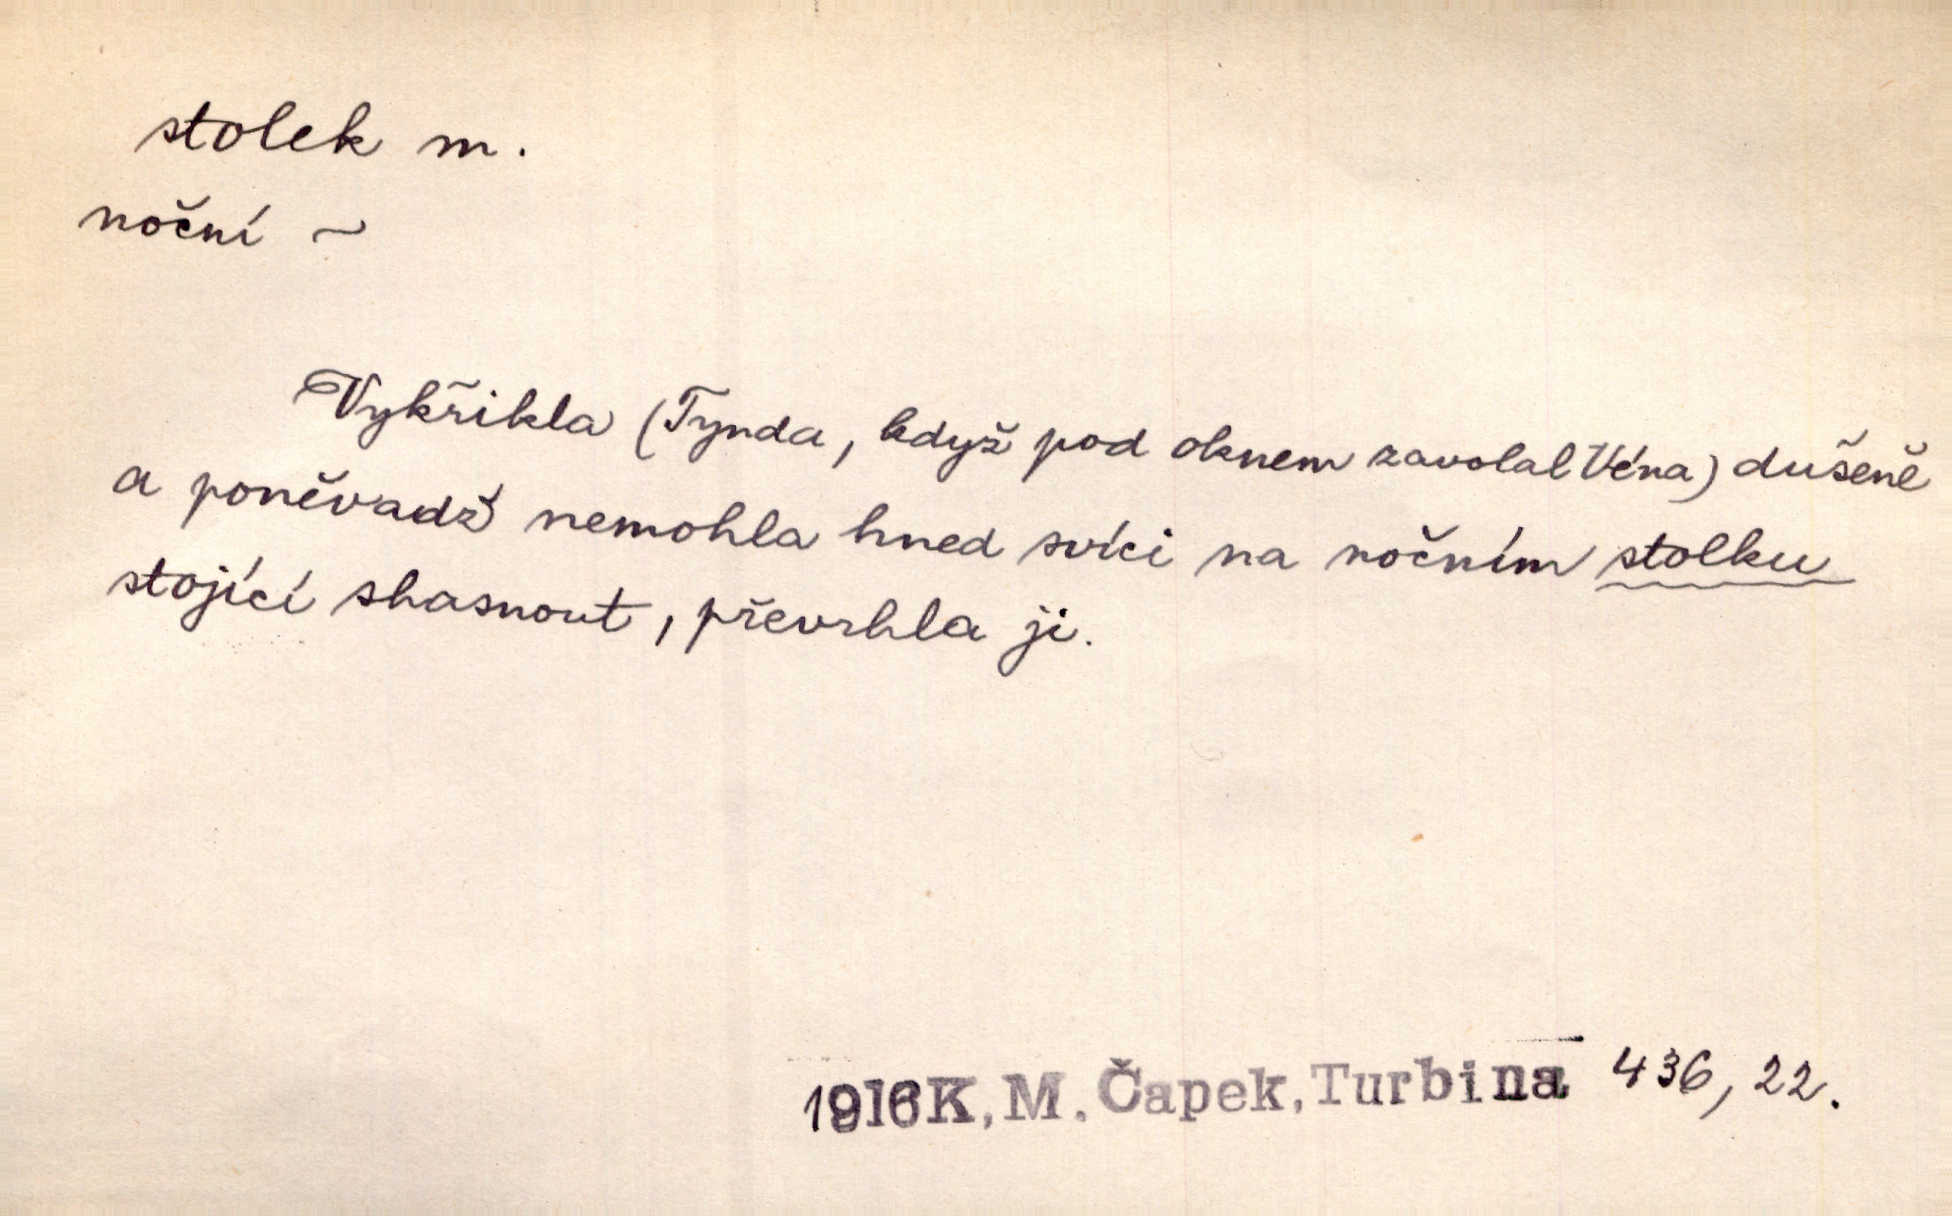 stolek m.
noční ~
Vykřikla (Tynda, když pod oknem zavolal Véna) dušeně
a poněvadž nemohla hned svíci na nočním stolku
stojící shasnout, převrhla ji.
1916 K, M. Čapek, Turbina 436, 22.